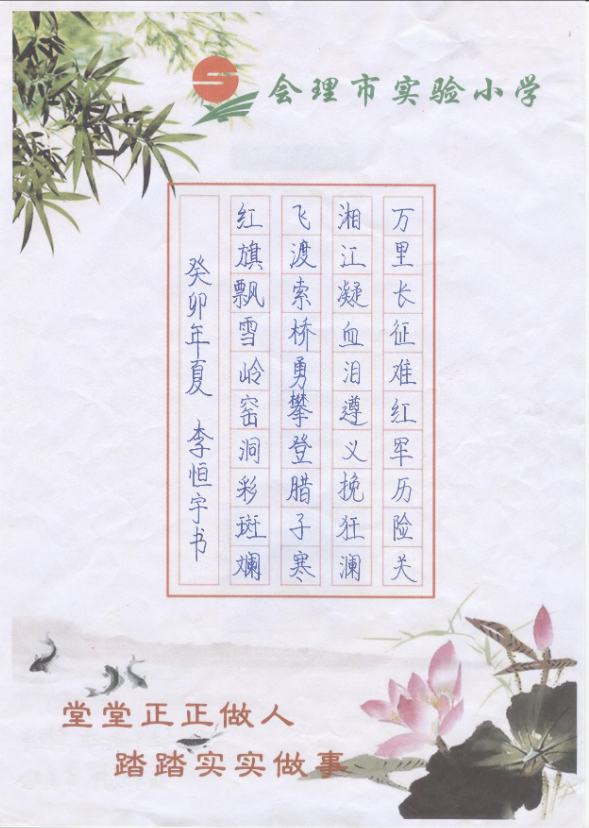 会理市实验小学
万里长征难红军历险关
湘江凝血泪遵义挽狂澜
飞渡索桥勇攀登腊子寒
红旗飘雪岭窑洞彩斑斓
癸卯年夏 李恒宇书
堂堂正正做人
踏踏实实做事